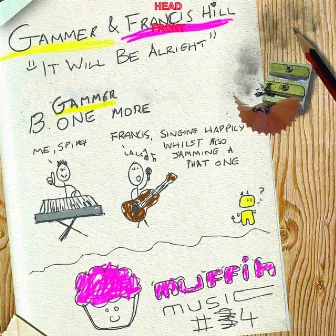 HEAD
GAMMER & FRANCIS HILL
"IT WILL BE ALRIGHT"
GAMMER
B. ONE MORE
ME, SPIKEY
FRANCIS, SINGING HAPPILY
WHILST ALSO
JAMMING A
PHAT ONE
LA LA LA
?
muffin
MUSIC
#34